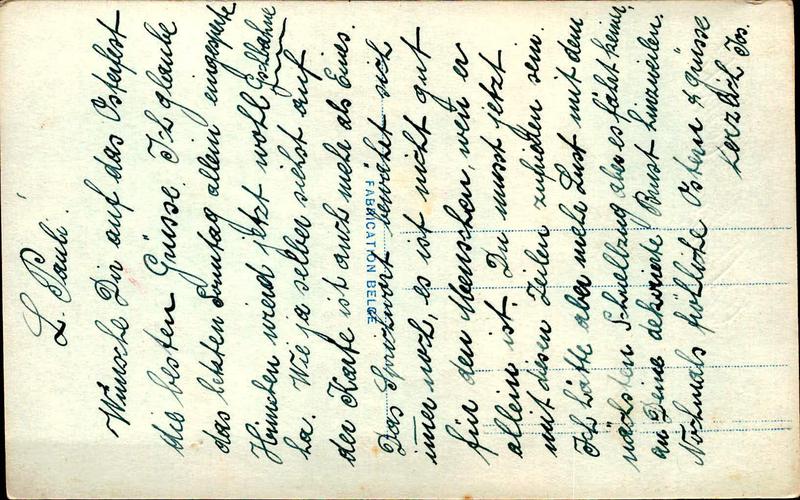 L. Pauli!
Wünsche Dir auf das Osterfest
die besten Grüsse. Ich glaube
das letzten Sonntag allein eingesperte
Hünchen wird jetzt wohl
ha. Wie ja selber siehst auf
der Karte ist auch mehr als Eines.
Das Sprichwort bewährt sich
imer noch, es ist nicht gut
für den Menschen, wen er
allein ist. Du musst jetzt
mit disen Zeilen zufrieden sein.
Ich hätte aber mehr Lust mit dem
nächsten Schnellzug aber es fährt keiner,
an Deine Brust hinzueilen.
Nochmals fröhliche Ostern & Grüsse
herzlich Jos.
FABRICATION BELGE